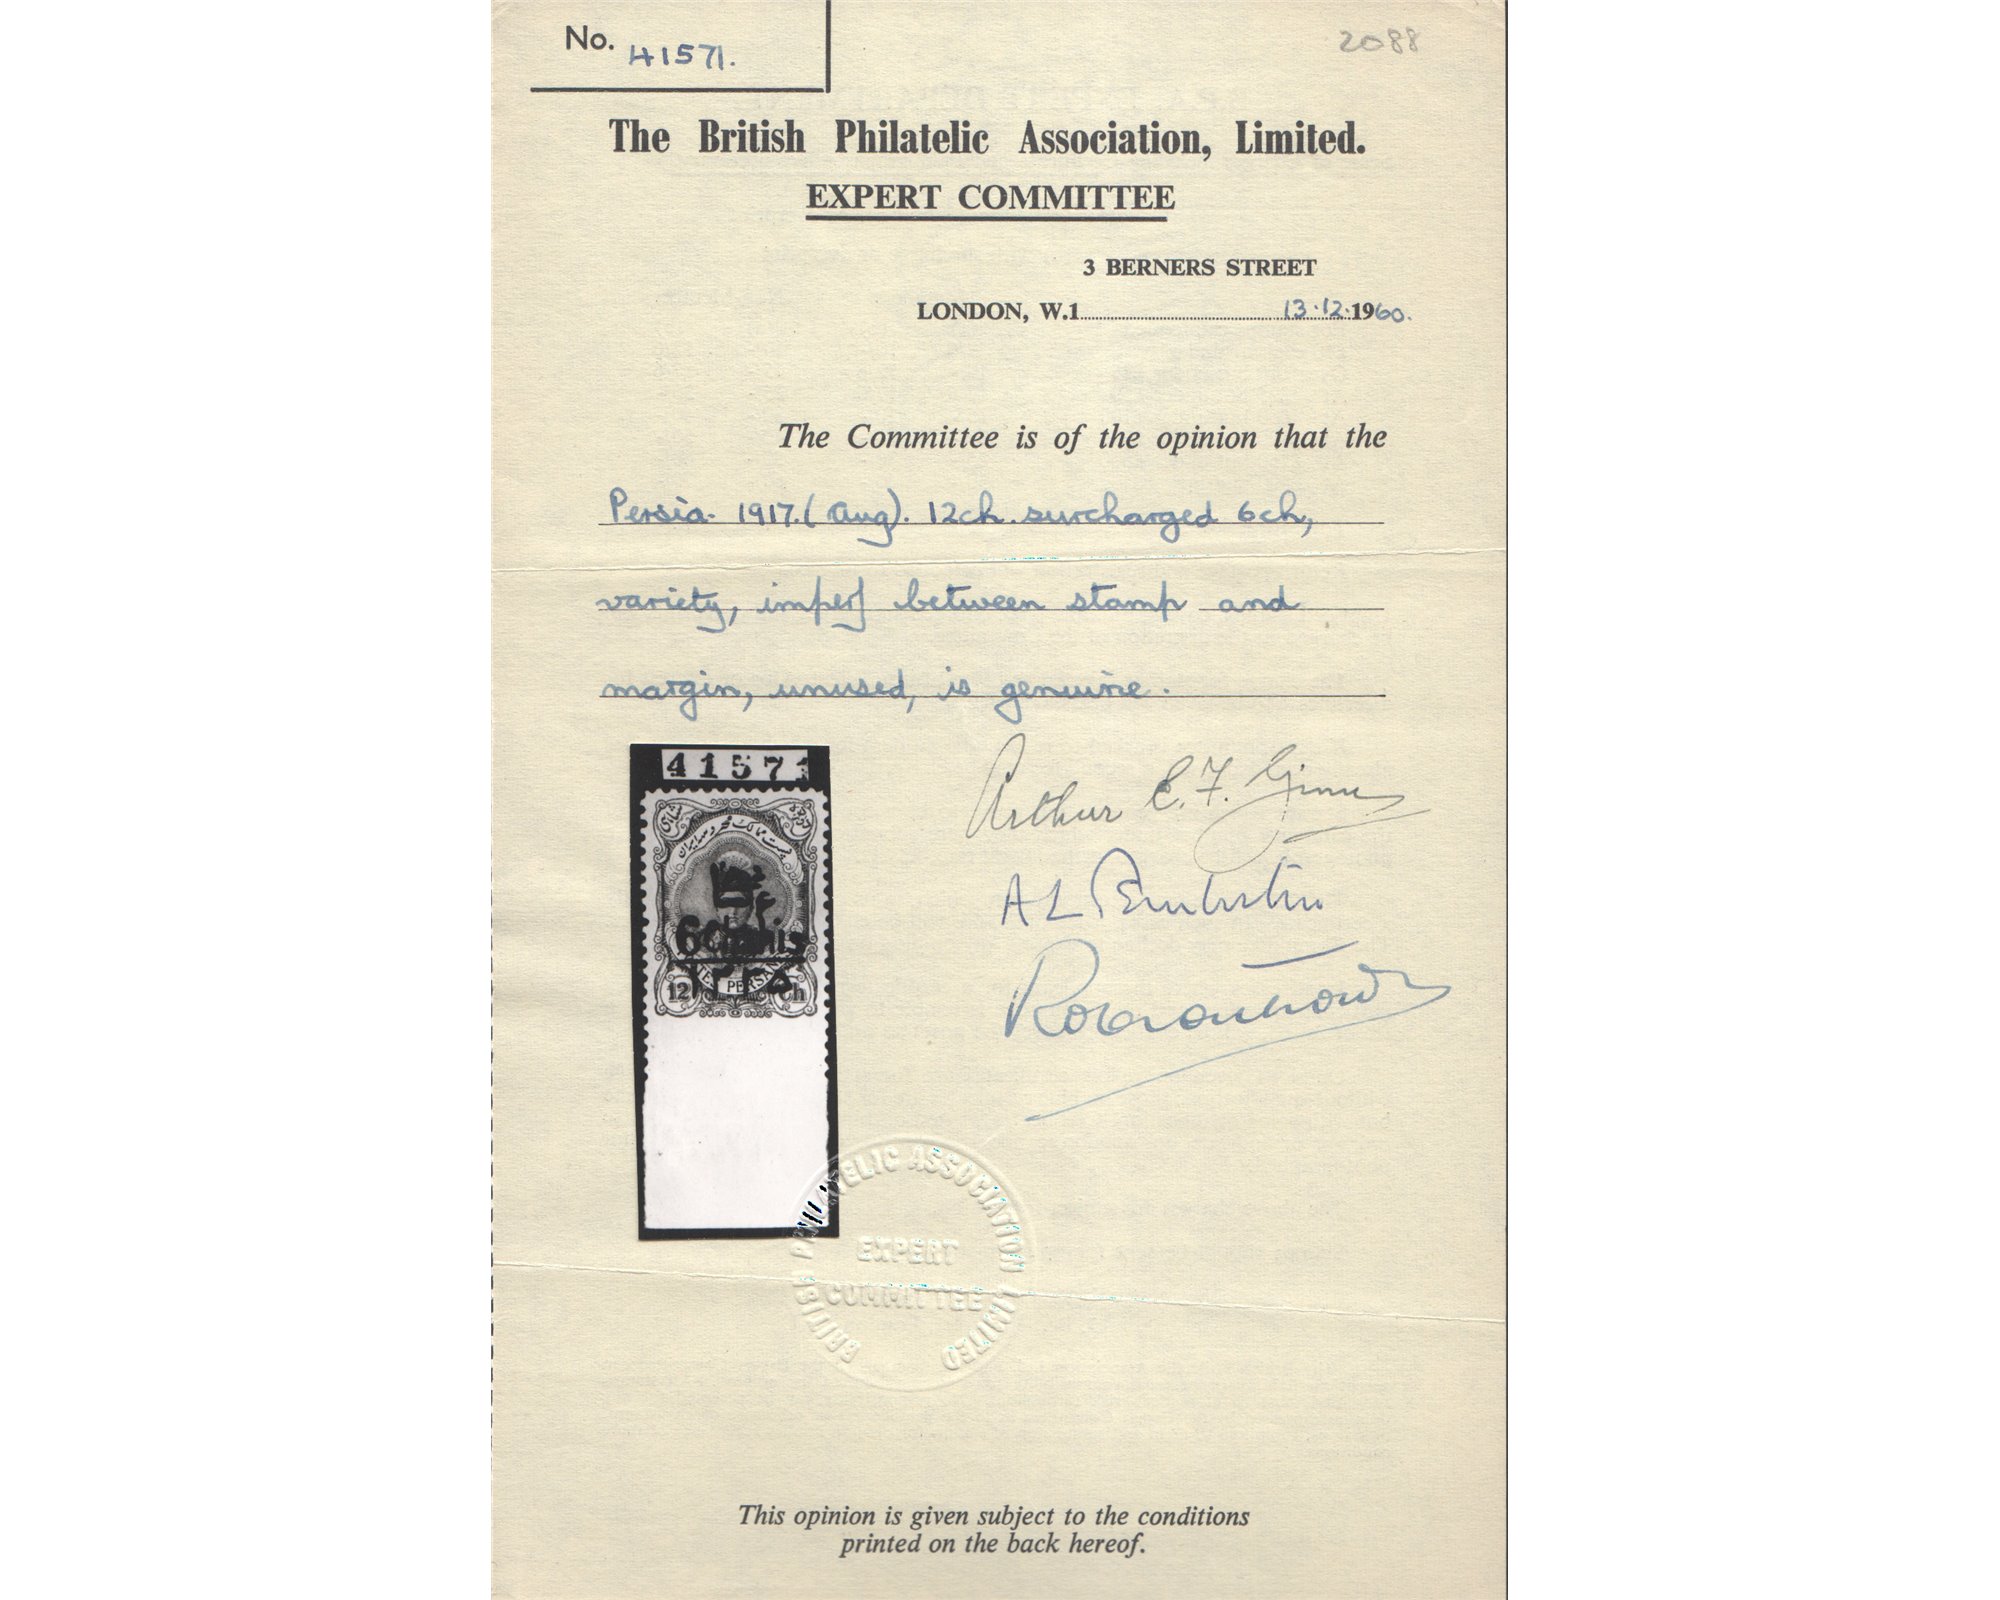 No. 41571.
2088
The British Philatelic Association, Limited.
EXPERT COMMITTEE
3 BERNERS STREET
LONDON, W.1 13.12.1960.
The Committee is of the opinion that the
Persia. 1917. (Aug). 12ch. surcharged 6ch,
variety, imperf between stamp and
margin, unused, is genuine.
41571
پست ممالک محروسه ایران
6 Chahis
۱۳۳۵
12 PERSANES Ch
Arthur E. F.
A L
BRITISH PHILATELIC ASSOCIATION LIMITED
EXPERT
COMMITTEE
This opinion is given subject to the conditions
printed on the back hereof.